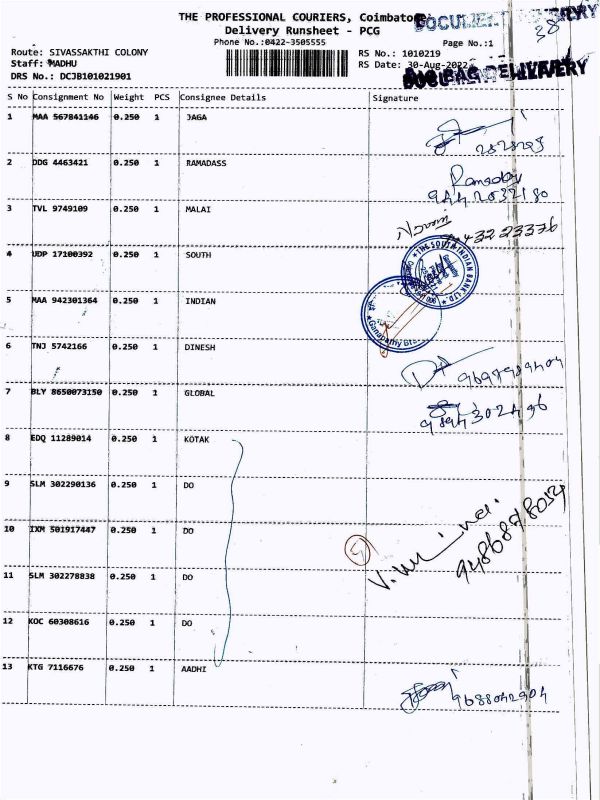 THE PROFESSIONAL COURIERS, Coimbatore
Delivery Runsheet - PCG
Phone No.:0422-3505555
Page No.:1
38
Route: SIVASSAKTHI COLONY
RS No.: 1010219
Staff: MADHU
RS Date: 30-Aug-2022
DRS No.: DCJB101021901
S No Consignment No Weight PCS Consignee Details Signature
1 MAA 567841146 0.250 1 JAGA
2 DDG 4463421 0.250 1 RAMADASS
Ramadass
3 TVL 9749109 0.250 1 MALAI
4 UDP 17100392 0.250 1 SOUTH
THE SOUTH INDIAN BANK LTD.
5 MAA 942301364 0.250 1 INDIAN
Ganapathy
6 TNJ 5742166 0.250 1 DINESH
7 BLY 8650073150 0.250 1 GLOBAL
8 EDQ 11289014 0.250 1 KOTAK
9 SLM 302290136 0.250 1 DO
10 IXM 501917447 0.250 1 DO
5
11 SLM 302278838 0.250 1 DO
12 KOC 60308616 0.250 1 DO
13 KTG 7116676 0.250 1 AADHI
9688042904